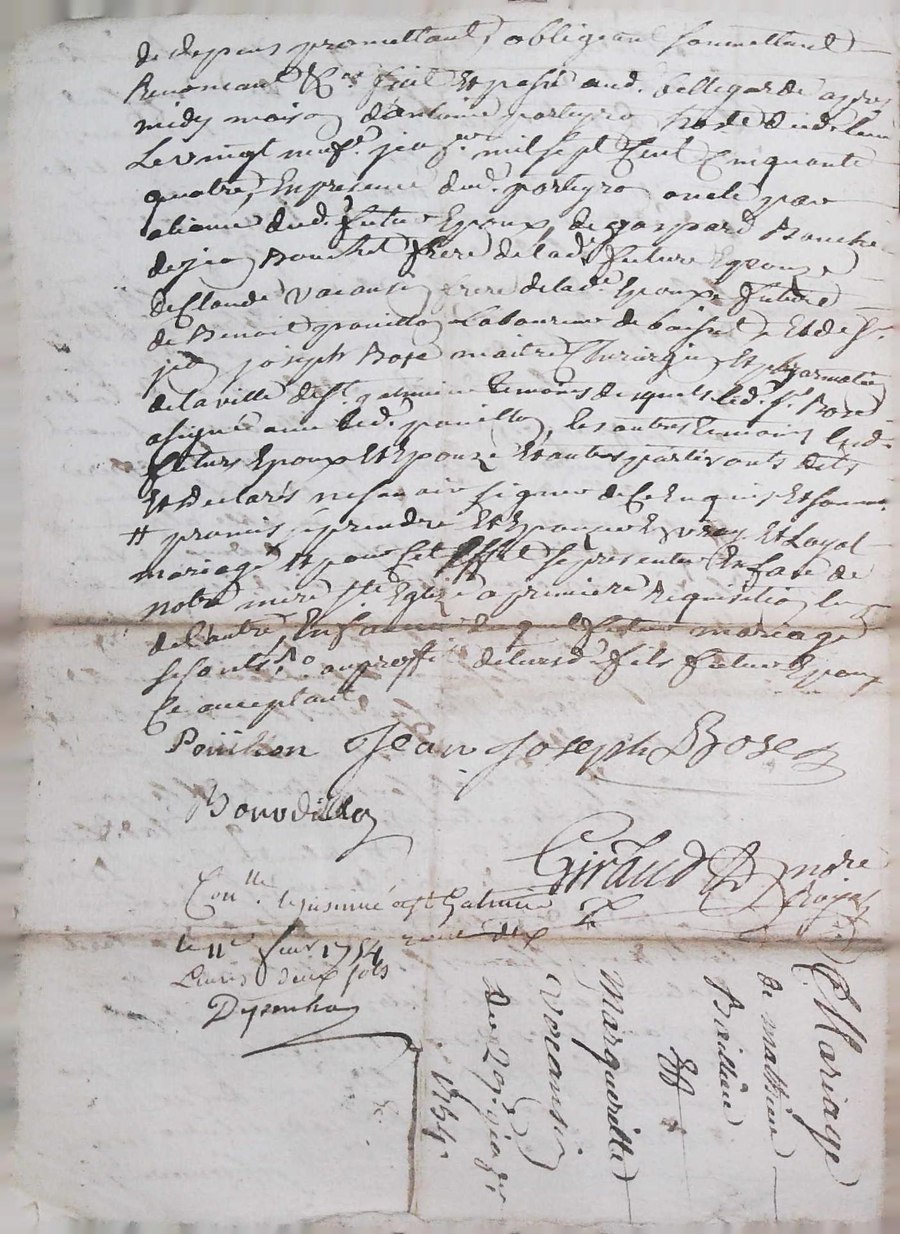 de depens promettant obligeant soumettant
Renonceant &ca fait Et passé aud. bellegarde apres
midy maison d'antoine porteyro hoste dud. lieu
Le vingt neufe. jer. mil sept Cent Cinquante
quatre, En presence dud. porteyro oncle par
aliance dud. futur Epoux, de gaspard Bouchet
de jea Bouchet frere de lade. future Epouze
de Claude vacansie frere de lade. Epouze future
de Benoit pouillon Laboureur de Et de sr.
jea joseph Boze maitre Chirurgien Et pharmatien
de la ville de st. galmier temoins desquels led. sr. Boze
a signé avec led. pouillon, les autres temoins lesd.
futurs Epoux Et Epouze Et autres parties ont dit
Et declarés ne scavoir signer de Ce Enquis Et sommés
# promis prendre Et Epouzer En vray Et Loyal
mariage Et pour Cet Effet se presenter En face de
notre mere ste. Eglize a premiere Requisition lun
de l'autre, En faveur duquel futur mariage
au proffit de leurd. fils futur Epoux
Ce acceptant
Pouillon Jean Joseph Boze
Giraud nore Royal
Conlle. a st Galmier
le 11e. fevr 1754
Livres deux sols
Mariage
de mathieu
Et
Margueritte
Vacansie
du 29. jer
1754.